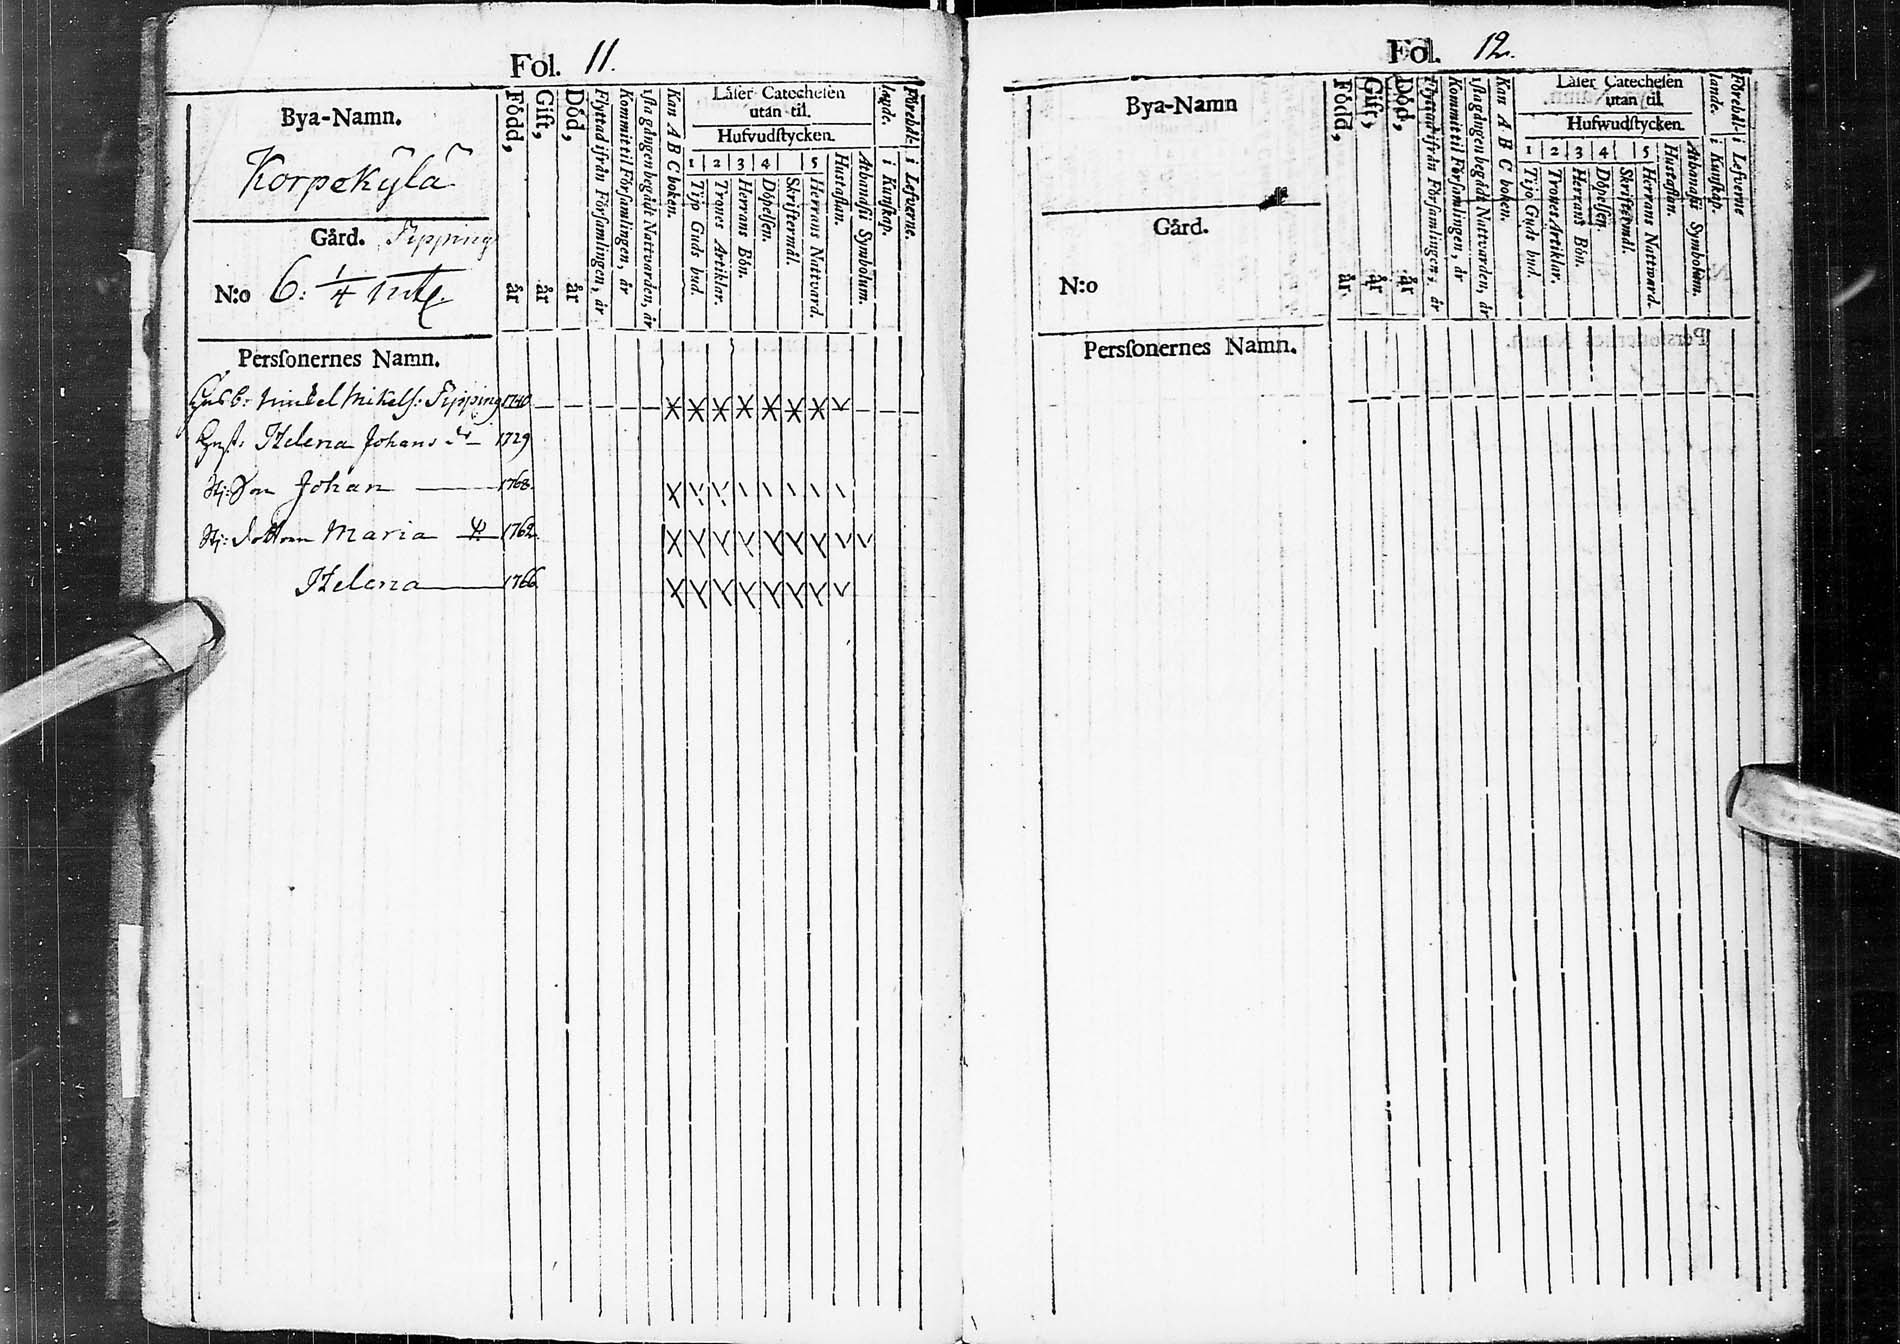 Fol. 11.
Bya-Namn.
Korpekÿlä
Gård. Pipping
N:o 6: 1/4 mtl.
Persſonernes Namn.
Född, år
Gift, år
Död, år
Flyttad ifrån Förſamlingen, år
Kommit til Förſamlingen, år
iſta gången begådt Nattvarden, år
Kan A B C boken.
Läſer Catecheſen
utan til.
Hufvudſtycken.
1 2 3 4 5
Tijo Guds bud.
Trones Artiklar.
Herrans Bön.
Döpelſen.
Skriftermål.
Herrans Nattvard.
Huſtaflan.
Athanaſii Symbolum.
i Kunſkap.
i Lefverne.
Husb: Mickel Mikelſ: Pipping 1740
Huſt: Helena Johans dr 1729
Hj: Son Johan 1768.
Hj: dottren Maria 1762.
Helena 1766
Fol. 12.
Bya-Namn
Gård.
N:o
Persſonernes Namn.
Född, år
Gift, år
Död, år
Flyttad ifrån Förſamlingen, år
Kommit til Förſamlingen, år
iſta gången begådt Nattvarden, år
Kan A B C boken.
Läſer Catecheſen
utan til.
Hufwudſtycken.
1 2 3 4 5
Tijo Guds bud.
Trones Artiklar.
Herrans Bön.
Döpelſen.
Skriftermål.
Herrans Nattward.
Huſtaflan.
Athanaſii Symbolum.
i Kunſkap.
i Lefverne